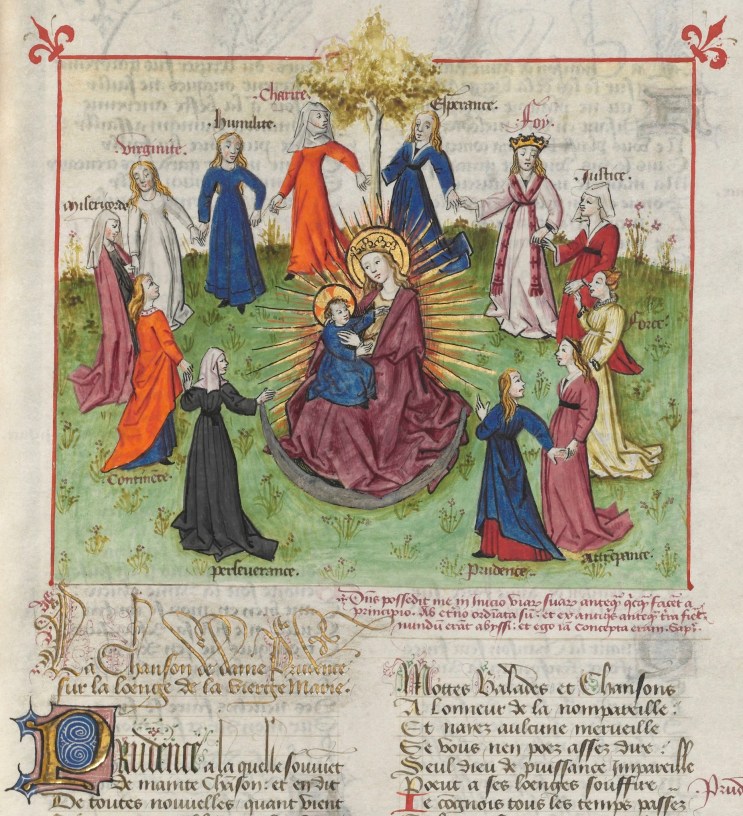 Charite.
Esperance.
Humilite.
Foy.
Virginite.
Justice.
Misericorde
Force.
Continēce
Perseverance.
Prudence.
Attrepance.
Dn̄s possedit me in Inicio viar suar anteq̄ q̄cq̄ facet a
principio. Ab et̄no ordiata sū. et ex antiqs anteq̄ tra fiet.
nundū erāt abyssi. et ego iā concepta eram. Sap.
La Chanson de dame Prudence
sur la loenge de la vierge Marie.
Prudence a la quelle souvient
De mainte Chāson: et en dit
De toutes nouvelles quant vient
Mottes Balades et Chansons
A lonneur de la nompareille:
Et narez aulcune merveille
Se vous nen poez assez dire:
Seul dieu de puissance impareille
Poeut a ses loenges souffire
Prud
Je cognois tous les temps passez